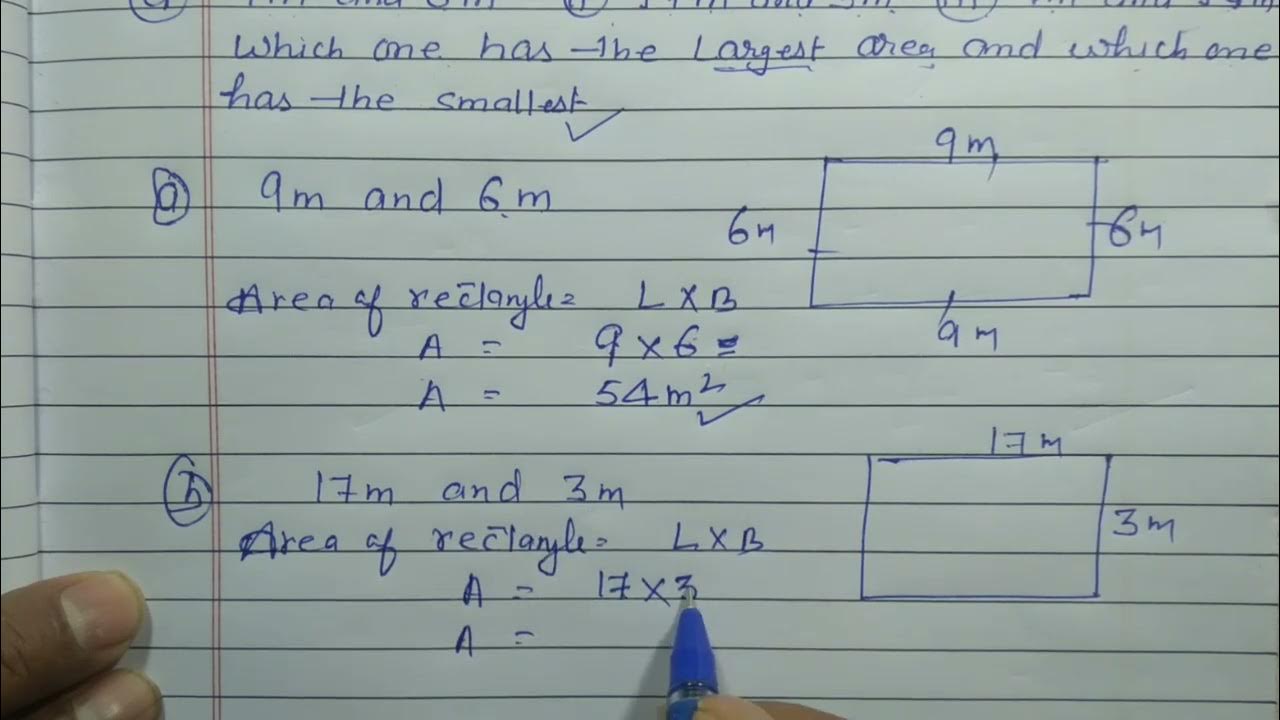 Which one has the Largest area and which one
has the smallest
9m
(a) 9m and 6m
6m
6m
Area of rectangle = L × B
9m
A = 9 × 6 =
A = 54m²
17m
(b) 17m and 3m
3m
Area of rectangle = L × B
A = 17 × 3
A =